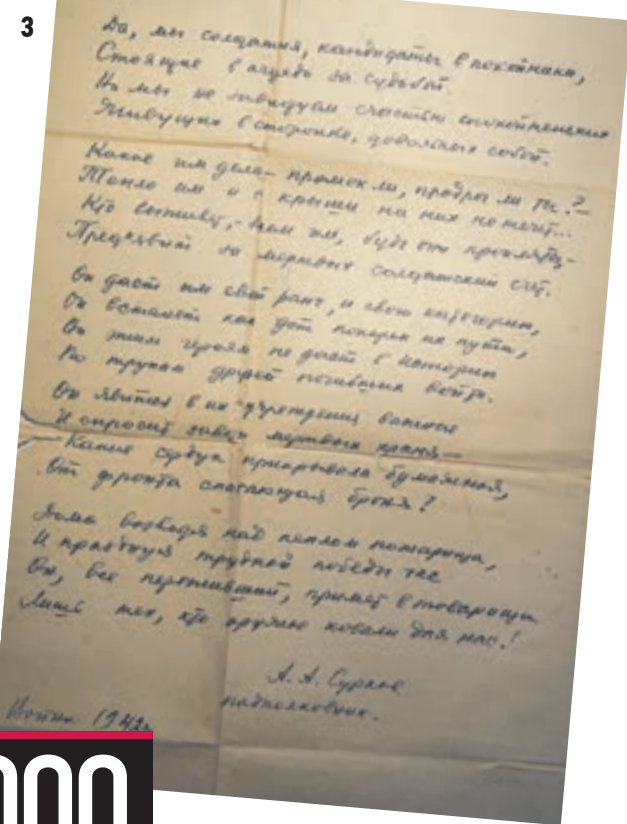 3
Да, мы солдатня, кандидаты в покойники,
Стоящие в очередь за судьбой.
Но мы не завидуем счастью спокойненьких
Живущих в сторонке, довольных собой.
Какое им дело – промок ли, продрог ли ты?
Тепло им и с крыши на них не течёт...
Кто выживет, – тем же, будь они прокляты –
Предъявит за мертвых солдатский счёт.
Он даст им свой ранг, и свою категорию,
Он встанет как дот поперек на пути,
Он этим героям не даст в историю
По трупам друзей погибших войти.
Он явится в их учреждения важные
И спросит мертвых кляня –
Какие сердца прикрывала бумажная,
От фронта спасающая броня?
Дома возводя над пеплом пожарища,
И празднуя трудной победы час
Он, все переживший, примет в товарищи
Лишь тех, кто оружие ковали для нас!
А. А. Сурков
подполковник.
1942г.